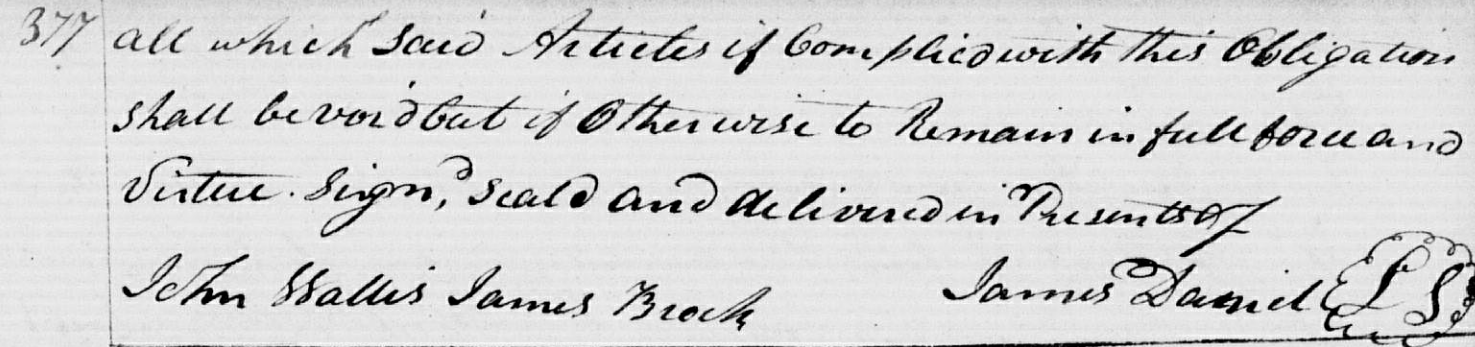 377 all which said Articles if Complied with this Obligation
shall be void but if Otherwise to Remain in full force and
Virtue. Signd, Seald and delivered in Presents of
John Wallis James Brock James Daniel LS